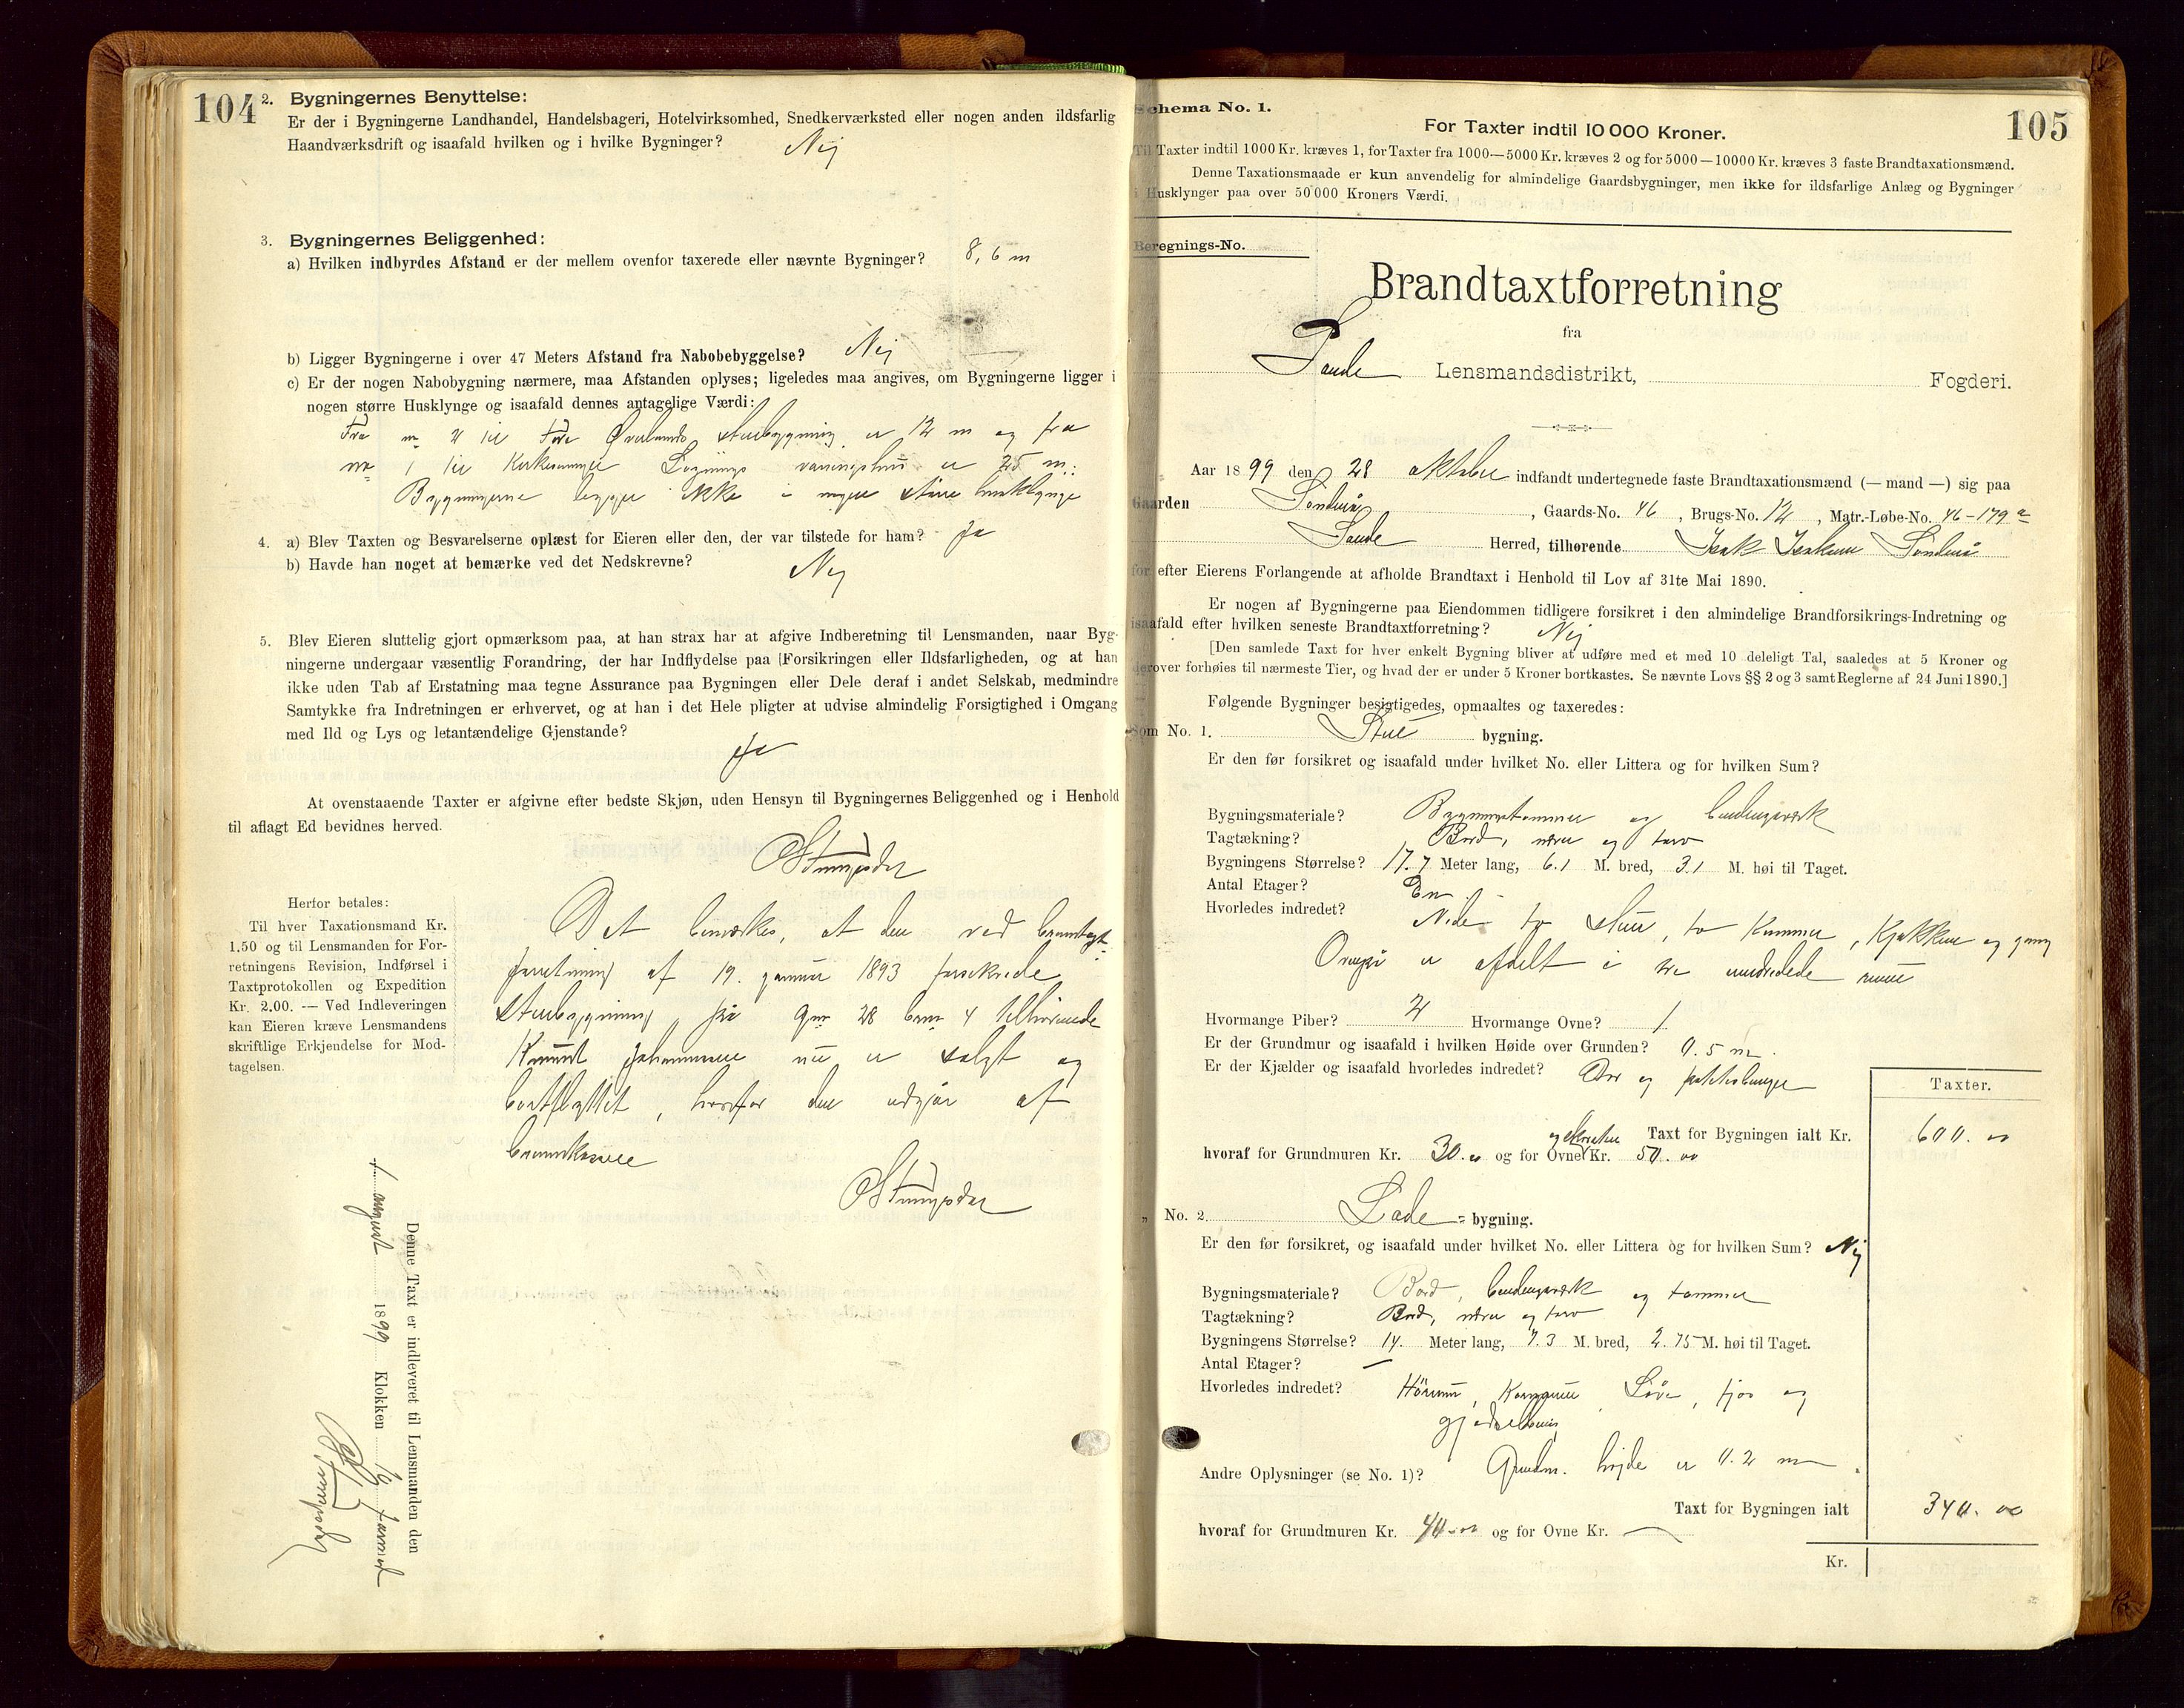 104
2. Bygningernes Benyttelse:
Er der i Bygningerne Landhandel, Handelsbageri, Hotelvirksomhed, Snedkerværksted eller nogen anden ildsfarlig
Haandværksdrift og isaafald hvilken og i hvilke Bygninger? Nej
3. Bygningernes Beliggenhed:
a) Hvilken indbyrdes Afstand er der mellem ovenfor taxerede eller nævnte Bygninger? 8,6 m
b) Ligger Bygningerne i over 47 Meters Afstand fra Nabobebyggelse? Nej
c) Er der nogen Nabobygning nærmere, maa Afstanden oplyses; ligeledes maa angives, om Bygningerne ligger i
nogen større Husklynge og isaafald dennes antagelige Værdi:
Fra no 2 til Tore Øvrelands stuebygning er 12 m og fra
no 1 til Kirkesanger våningshus er 25 m.
Bygningerne ligger ikke i nogen større husklynge
4. a) Blev Taxten og Besvarelserne oplæst for Eieren eller den, der var tilstede for ham? Ja
b) Havde han noget at bemærke ved det Nedskrevne? Nej
5. Blev Eieren sluttelig gjort opmærksom paa, at han strax har at afgive Indberetning til Lensmanden, naar Byg-
ningerne undergaar væsentlig Forandring, der har Indflydelse paa [Forsikringen eller Ildsfarligheden, og at han
ikke uden Tab af Erstatning maa tegne Assurance paa Bygningen eller Dele deraf i andet Selskab, medmindre
Samtykke fra Indretningen er erhvervet, og at han i det Hele pligter at udvise almindelig Forsigtighed i Omgang
med Ild og Lys og letantændelige Gjenstande?
Ja
At ovenstaaende Taxter er afgivne efter bedste Skjøn, uden Hensyn til Bygningernes Beliggenhed og i Henhold
til aflagt Ed bevidnes herved.
Herfor betales:
Til hver Taxationsmand Kr.
1.50 og til Lensmanden for For-
retningens Revision, Indførsel i
Taxtprotokollen og Expedition
Kr. 2.00. — Ved Indleveringen
kan Eieren kræve Lensmandens
skriftlige Erkjendelse for Mod-
tagelsen.
Det bemærkes, at den ved brandtaxt
forretning af 19. januar 1893 forsikrede
stuebygning på gno 28 bno 4 tilhørende
Knud Johannesen nu er solgt og
bortflyttet, hvorfor den udgår af
brandkassen
Denne Taxt er indleveret til Lensmanden den
1 august 1899 Klokken 10 formid
105
Schema No. 1.
For Taxter indtil 10 000 Kroner.
Til Taxter indtil 1000 Kr. kræves 1, for Taxter fra 1000—5000 Kr. kræves 2 og for 5000—10000 Kr. kræves 3 faste Brandtaxationsmænd.
Denne Taxationsmaade er kun anvendelig for almindelige Gaardsbygninger, men ikke for ildsfarlige Anlæg og Bygninger
i Husklynger paa over 50 000 Kroners Værdi.
Beregnings-No.
Brandtaxtforretning
fra
Saude Lensmandsdistrikt, Fogderi.
Aar 1899 den 28 oktober indfandt undertegnede faste Brandtaxationsmænd (— mand —) sig paa
Gaarden Søndenå, Gaards-No. 46, Brugs-No. 12, Matr.-Løbe-No. 46-179 a
Saude Herred, tilhørende Isak Isaksen Søndenå
for efter Eierens Forlangende at afholde Brandtaxt i Henhold til Lov af 31te Mai 1890.
Er nogen af Bygningerne paa Eiendommen tidligere forsikret i den almindelige Brandforsikrings-Indretning og
isaafald efter hvilken seneste Brandtaxtforretning? Nej
[Den samlede Taxt for hver enkelt Bygning bliver at udføre med et med 10 deleligt Tal, saaledes at 5 Kroner og
derover forhøies til nærmeste Tier, og hvad der er under 5 Kroner bortkastes. Se nævnte Lovs §§ 2 og 3 samt Reglerne af 24 Juni 1890.]
Følgende Bygninger besigtigedes, opmaaltes og taxeredes:
Som No. 1. Stue bygning.
Er den før forsikret og isaafald under hvilket No. eller Littera og for hvilken Sum?
Bygningsmateriale? Bygningstømmer og bindingsværk
Tagtækning? Bord, næver og torv
Bygningens Størrelse? 17.7 Meter lang, 6.1 M. bred, 3.1 M. høi til Taget.
Antal Etager? En
Hvorledes indredet? Nede to stuer, to Kammer, Kjøkken og gang
Ovenpå er afdelt i tre uindredede rum
Hvormange Piber? 2 Hvormange Ovne? 1
Er der Grundmur og isaafald i hvilken Høide over Grunden? 0.5 m.
Er der Kjælder og isaafald hvorledes indredet? Dør og potetesbinger
Taxter.
Taxt for Bygningen ialt Kr. 600. 00
hvoraf for Grundmuren Kr. 30.00 og for Ovne og skorsten Kr. 50.00
„ No. 2. Lade = bygning.
Er den før forsikret, og isaafald under hvilket No. eller Littera og for hvilken Sum? Nej
Bygningsmateriale? Bord, bindingsværk og tømmer
Tagtækning? Bord, næver og torv
Bygningens Størrelse? 14. Meter lang, 7.3 M. bred, 2.75 M. høi til Taget.
Antal Etager? —
Hvorledes indredet? Hørum, Kornrum, Låve, fjøs og
gjødselhus
Andre Oplysninger (se No. 1)? Grundm. høide er 0.2 m
Taxt for Bygningen ialt 340. 00
hvoraf for Grundmuren Kr. 40.00 og for Ovne Kr. —
Kr.